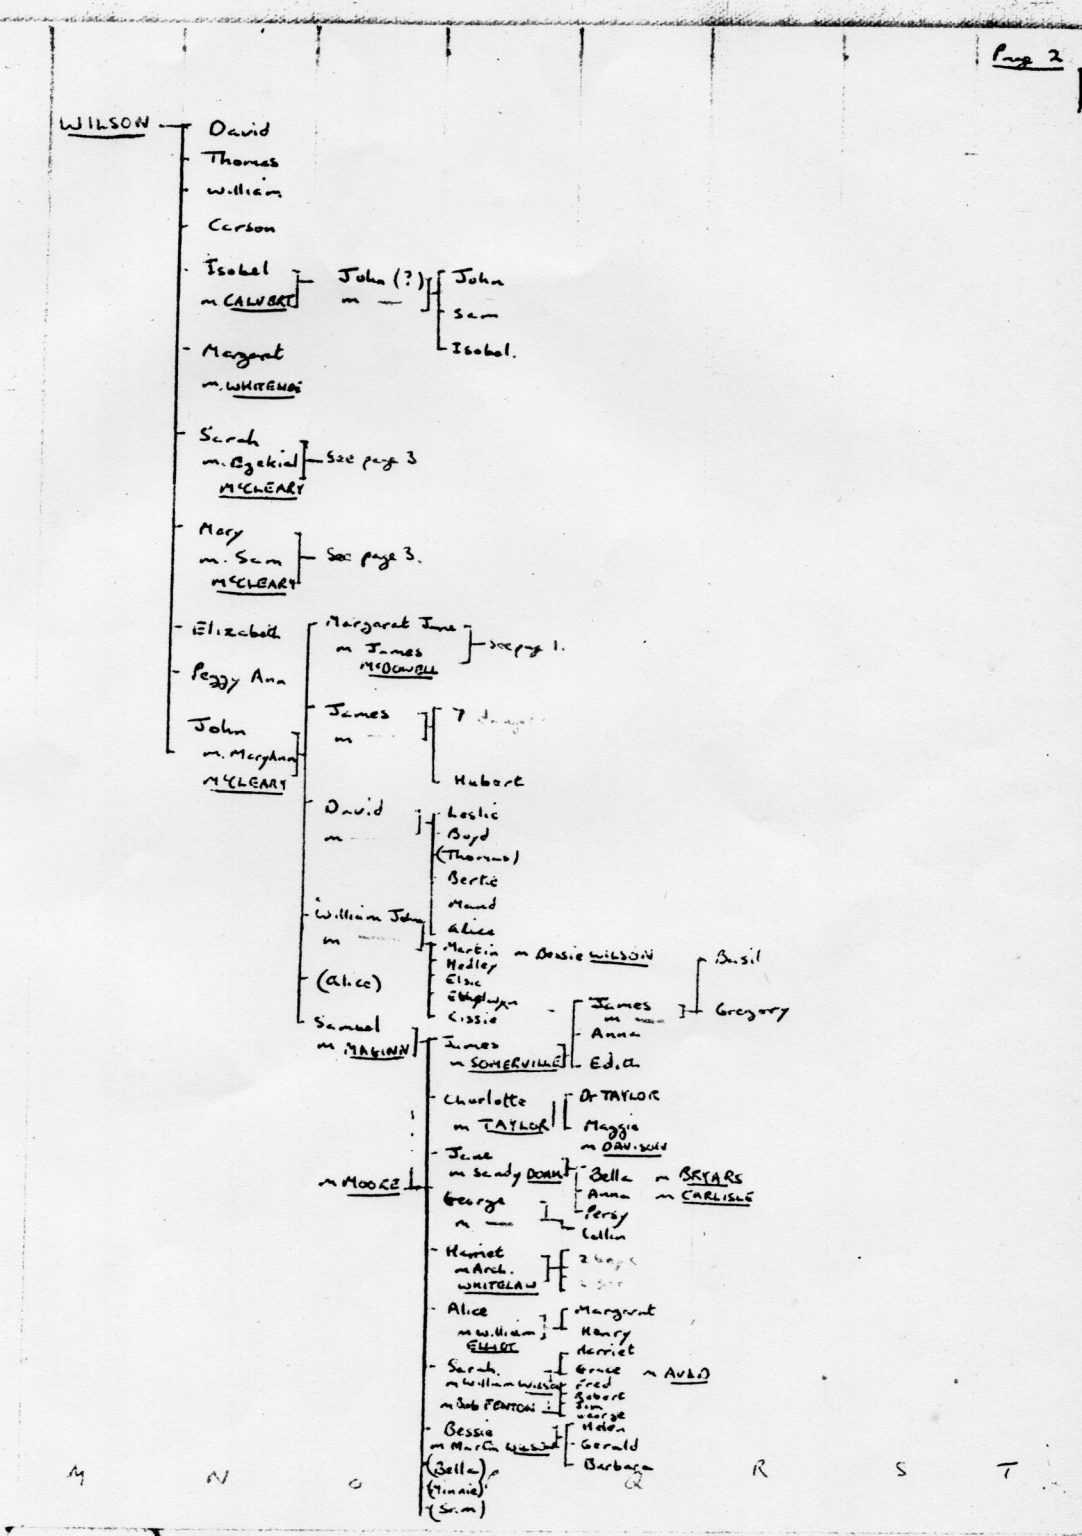 Page 2
WILSON
David
Thomas
William
Carson
Isobel
m CALVERT
John (?)
m —
John
Sam
Isobel.
Margaret
m. WHITESIDE
Sarah
m. Ezekial
McCLEARY
See page 3
Mary
m. Sam
McCLEARY
See page 3.
Elizabeth
Peggy Ann
John
m. MaryAnn
McCLEARY
Margaret Jane
m James
McDOWELL
See page 1.
James
m
7
Hubert
David
m
Leslie
Boyd
(Thomas)
Bertie
Maud
Alice
William John
m
Martin m Bessie WILSON
Hedley
Elsie
Ethelwyn
Cissie
(Alice)
Samuel
m MAGINN
m MOORE
James
m SOMERVILLE
James
m —
Anna
Edith
Basil
Gregory
Charlotte
m TAYLOR
Dr TAYLOR
Maggie
m DAVISON
Jane
m Sandy
Bella m BRYARS
Anna m CARLISLE
Persy
George
m —
Collin
Harriet
m Arch.
WHITELAW
2 boys
Alice
m William
ELLIOT
Margaret
Henry
Sarah
m William WILSON
m Bob FENTON
Harriet
Grace m AULD
Fred
Robert
Jim
George
Bessie
m Martin WILSON
Helen
Gerald
Barbara
(Bella)
(Minnie)
(Sam)
M N O P Q R S T